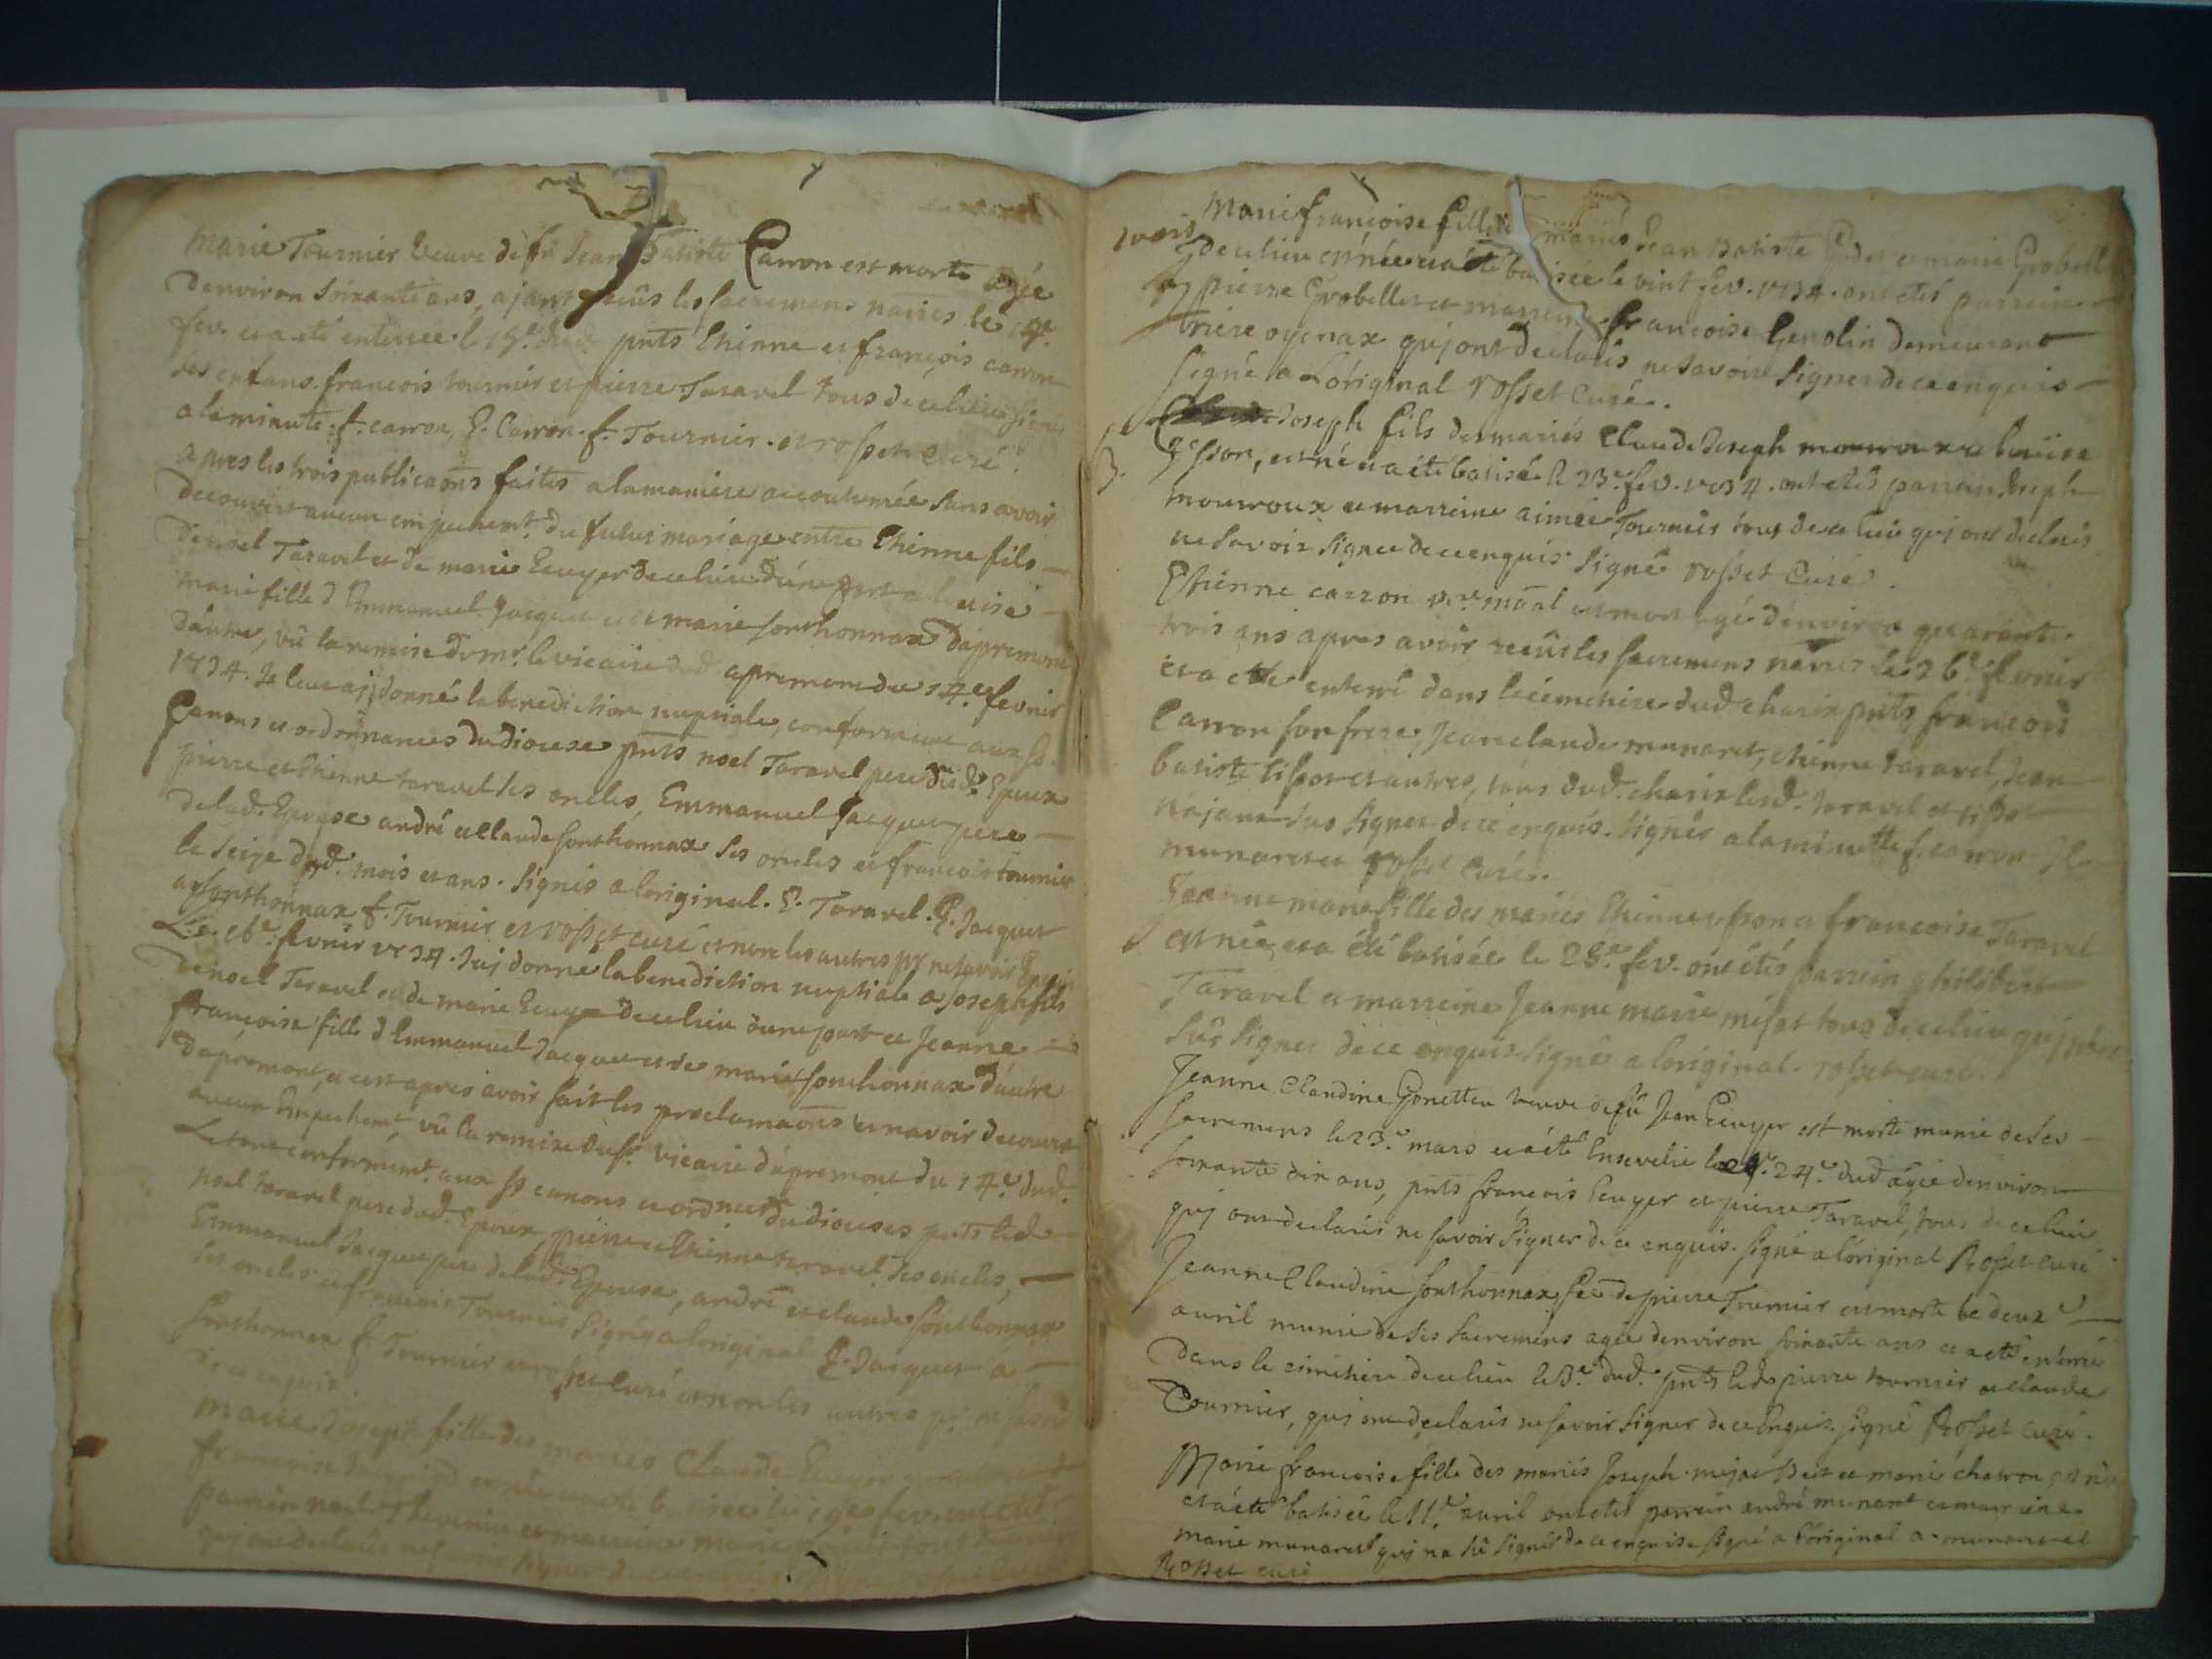 Marie Tournier veuve de fû Jean Batiste Carron est morte agée
denviron soixante ans, ajant reçûs les sacremens naires le 14e
fev. et a eté enterrée le 15e dud. pnts Etienne et françois carron
ses enfans. francois tournier et pierre Taravel tous de ce lieu signés
a la minute. f. carron, E. Carron. f. Tournier. et rosset curé.
apres les trois publicaons faites a la maniere accoutumée sans avoir
decouvert aucun empechemt. du futur mariage entre Etienne fils
de noel Taravel et de marie Ecuyer de ce lieu dune part et louise
marie fille d'Emmanuel Jacquet et de marie sonthonnax dapremont
d'autre, vû la remise du mr. le vicaire dud apremont du 14e. fevrier
1734. Je leur aj donné la benediction nuptiale, conformemt aux ss.
Canons et ordonnances du diocese pnts noel Taravel pere dud. Epoux
pierre et Etienne taravel ses oncles, Emmanuel Jacquet pere
de lad. Epouse andré et Claude sonthonnax ses oncles et francois tournier
le seize dud. mois et ans. Signés a loriginal. E. Taravel. E. Jacquet
a sonthonnax f. Tournier et rosset curé et non les autres pr ne savoir
Le 16e. fevrier 1734. Jaj donné la benediction nuptiale a Joseph fils
de noel Taravel et de marie Ecuyer de ce lieu dune part et Jeanne
françoise fille d'Emmanuel Jacquet et de marie sonthonnax d'autre
dapremont, et cest apres avoir fait les proclamaons et navoir decouvert
aucun Empechemt. vû la remise du sr. vicaire dapremont du 14e. dud.
Le tout conformemt. aux ss canons et ordnces du dioceses pnts led
noel taravel pere dud. Epoux, pierre et Etienne taravel ses oncles,
Emmanuel Jacquet pere de lad. Epouse, andré et claude sonthonnax
ses oncles et francois Tournier Signés a loriginal E. Jacquet a.
sonthonnax f. Tournier et rosset curé et non les autres pr. ne savoir
de ce enquis.
marie Joseph fille des mariés Claude Ecuyer
françoise est née et a eté batisée le fev. ont etés
parrain noel Thevenin et marreine marie
quj ont declarés ne savoir signer de ce enquis
Marie françoise fille des mariés Jean Batiste et marie Grobellet
de ce lieu est née et a eté batisée le vint fev. 1734. ont etés parrein
pierre Grobellet et marreine françoise Genolin demeurant
oyonax quj ont declarés ne savoir signer de ce enquis
signé a Lóriginal rosset Curé.
Joseph fils des mariés Claude Joseph mourroux et louise
est né et a eté batisé le 23e. fev. 1734. ont etés parrain Joseph
mourroux et marreine aimée Tournier tous de ce lieu quj ont declarés
ne savoir signer de ce enquis signé rosset Curé.
Etienne carron est mort agé denviron quarante
trois ans apres avoir recûs les sacremens naires le 26e. fevrier
et a eté enterré dans le cimetiere dud charix pnts françois
Carron son frere, Jean claude munaret, etienne taravel, Jean
batiste tissot et autres, tous dud. charix lesd. taravel et tissot
n'ajant sus signer de ce enquis. Signés a la minutte f. carron JC
munaret et rosset Curé.
Jeanne marie fille des mariés Etienne et francoise Taravel
est née, et a été batisée le 28e. fev. ont étés parrein philibert
Taravel et marreine Jeanne marie tous de ce lieu quj
sûs signer de ce enquis signé a loriginal. rosset curé.
Jeanne Claudine Gonetten veuve de fû Jean Ecuyer est morte munie de ses
sacremens le 23e mars et a eté Ensevelie le 24e dud agée denviron
soixante dix ans, pnts francois Ecuyer et pierre Taravel, tous de ce lieu
quj ont declarés ne savoir signer de ce enquis. signé a lóriginal Rosset curé
Jeanne Claudine sonthonnax fee de pierre Tournier est morte le deuxe
avril munie de ses sacremens agée denviron soixante ans et a eté enterré
dans le cimetiere de ce lieu le 3e. dud. pnts led. pierre tournier et claude
Tournier, quj ont declarés ne savoir signer de ce Enquis. signé Rosset curé.
Marie francoise fille des mariés Joseph et marie chatron est née
et a eté batisée le 11e. avril ont etés parrein andré munaret et marreine
marie munaret quj na sû signer de ce enquise signé a lóriginal a. munaret et
Rosset curé